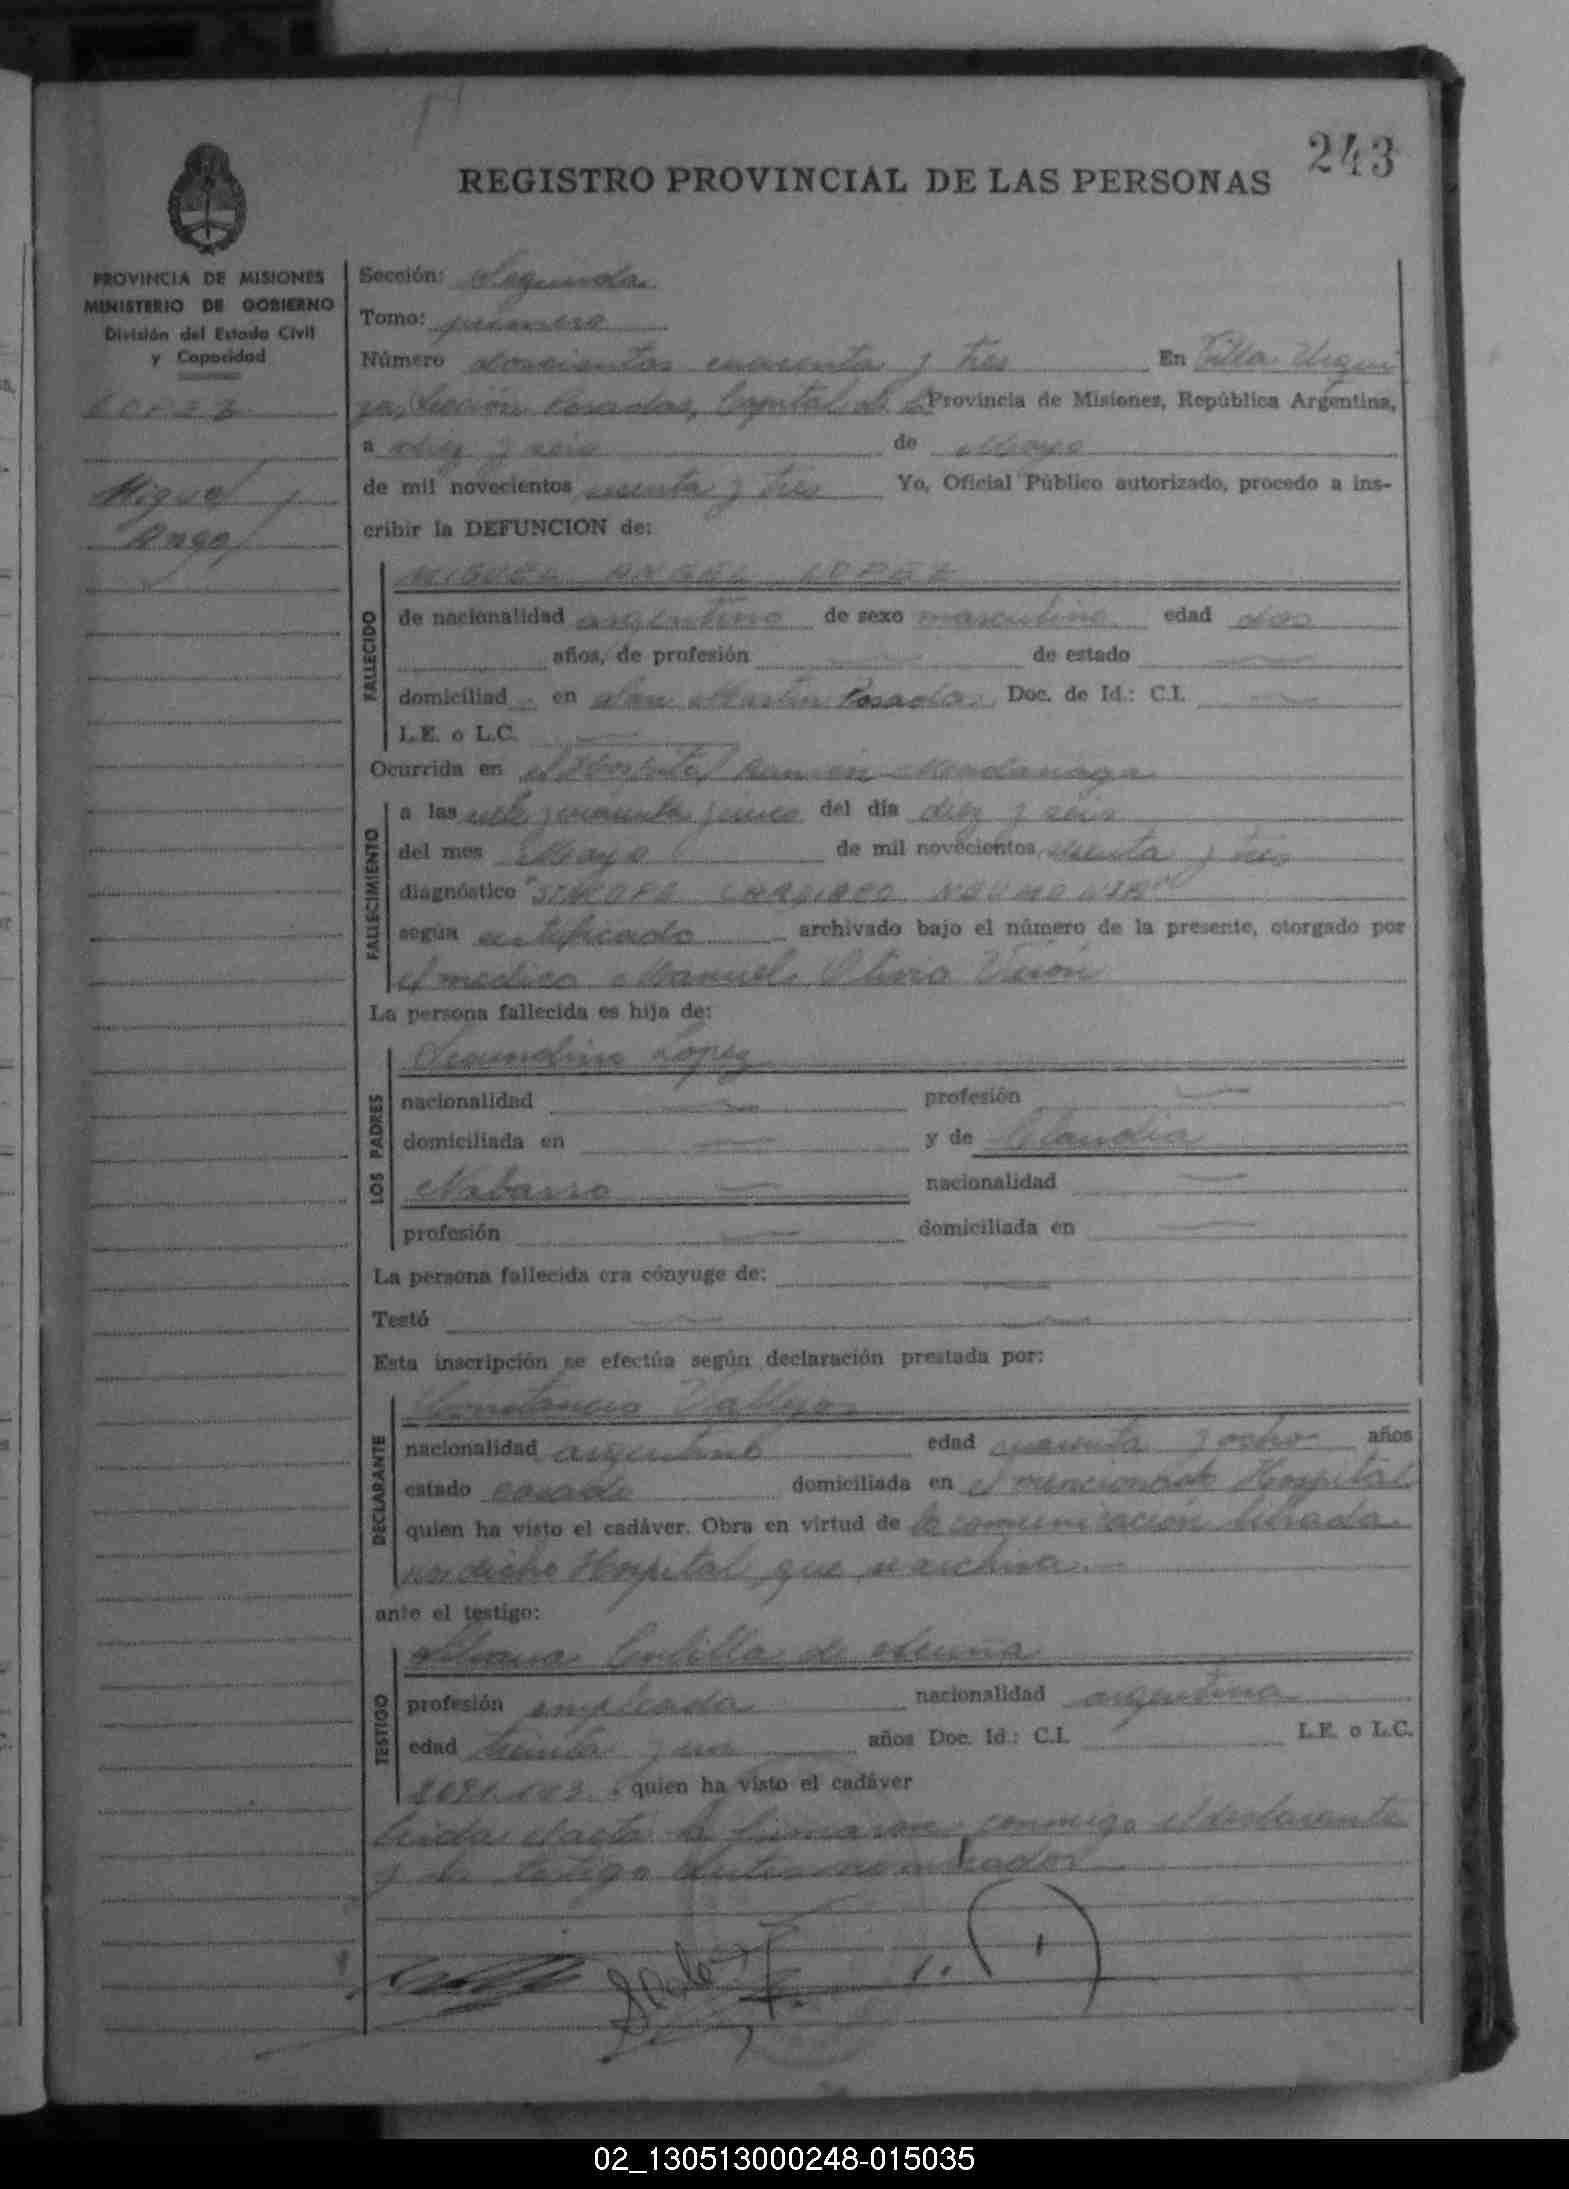 243
REGISTRO PROVINCIAL DE LAS PERSONAS
PROVINCIA DE MISIONES
MINISTERIO DE GOBIERNO
División del Estado Civil
y Capacidad
LOPEZ
Miguel
Angel
Sección: Segunda
Tomo: primero
Número doscientos cuarenta y tres En Villa Urqui
za, Sección Posadas, Capital de la Provincia de Misiones, República Argentina,
a diez y seis de Mayo
de mil novecientos sesenta y tres Yo, Oficial Público autorizado, procedo a ins-
cribir la DEFUNCION de:
FALLECIDO
MIGUEL ANGEL LOPEZ
de nacionalidad argentino de sexo masculino edad dos
años, de profesión — de estado —
domiciliad en San Martin Posadas Doc. de Id.: C.I. —
L.E. o L.C. —
Ocurrida en el Hospital Ramón Madariaga
FALLECIMIENTO
a las siete y cincuenta y cinco del día diez y seis
del mes Mayo de mil novecientos sesenta y tres
diagnóstico "SINCOPE CARDIACO NEUMONIA"
según certificado archivado bajo el número de la presente, otorgado por
el medico Manuel Olivio
La persona fallecida es hija de:
LOS PADRES
Secundino Lopez
nacionalidad — profesión —
domiciliada en — y de Claudia
Nabarro — nacionalidad —
profesión — domiciliada en —
La persona fallecida era cónyuge de: —
Testó — —
Esta inscripción se efectúa según declaración prestada por:
DECLARANTE
Constancio Vallejos
nacionalidad argentino edad cuarenta y ocho años
estado casado domiciliada en el mencionado Hospital
quien ha visto el cadáver. Obra en virtud de la comunicación librada
por dicho Hospital que se archiva.—
ante el testigo:
TESTIGO
de Acuña
profesión empleada nacionalidad argentina
edad treinta y un años Doc. Id.: C.I. L.E. o L.C.
quien ha visto el cadáver
Leida el acta la firmaron conmigo el declarante
y la testigo antes nombrados
02_130513000248-015035